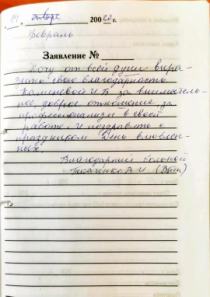 14 январь 2020 г.
февраль
Заявление №
Хочу от всей души выра-
зить свою благодарность
Каменевой И В за вниматель-
ное, доброе отношение, за
профессионализм в своей
работе. И поздравить с
праздником День влюблен-
ных.
Благодарный больной
Ткаченко В. И